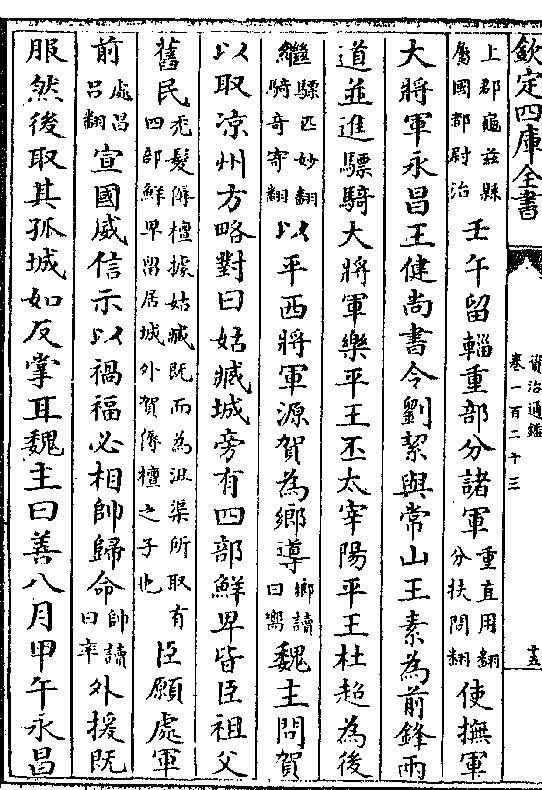 欽定四庫全書
資治通鑑
卷一百二十三
十五
上郡龜兹縣屬國都尉治壬午留輜重部分諸軍重直用翻分扶問翻使撫軍
大將軍永昌王健尚書令劉絜與常山王素為前鋒兩
道並進驃騎大將軍樂平王丕太宰陽平王杜超為後
繼驃匹妙翻騎奇寄翻以平西將軍源賀為鄉導鄉讀曰嚮魏主問賀
以取凉州方略對曰姑臧城旁有四部鮮卑皆臣祖父
舊民禿髮傉檀據姑臧既而為沮渠所取有四部鮮卑留居城外賀傉檀之子也臣願處軍
前處昌呂翻宣國威信示以禍福必相帥歸命帥讀曰率外援既
服然後取其孤城如反掌耳魏主曰善八月甲午永昌